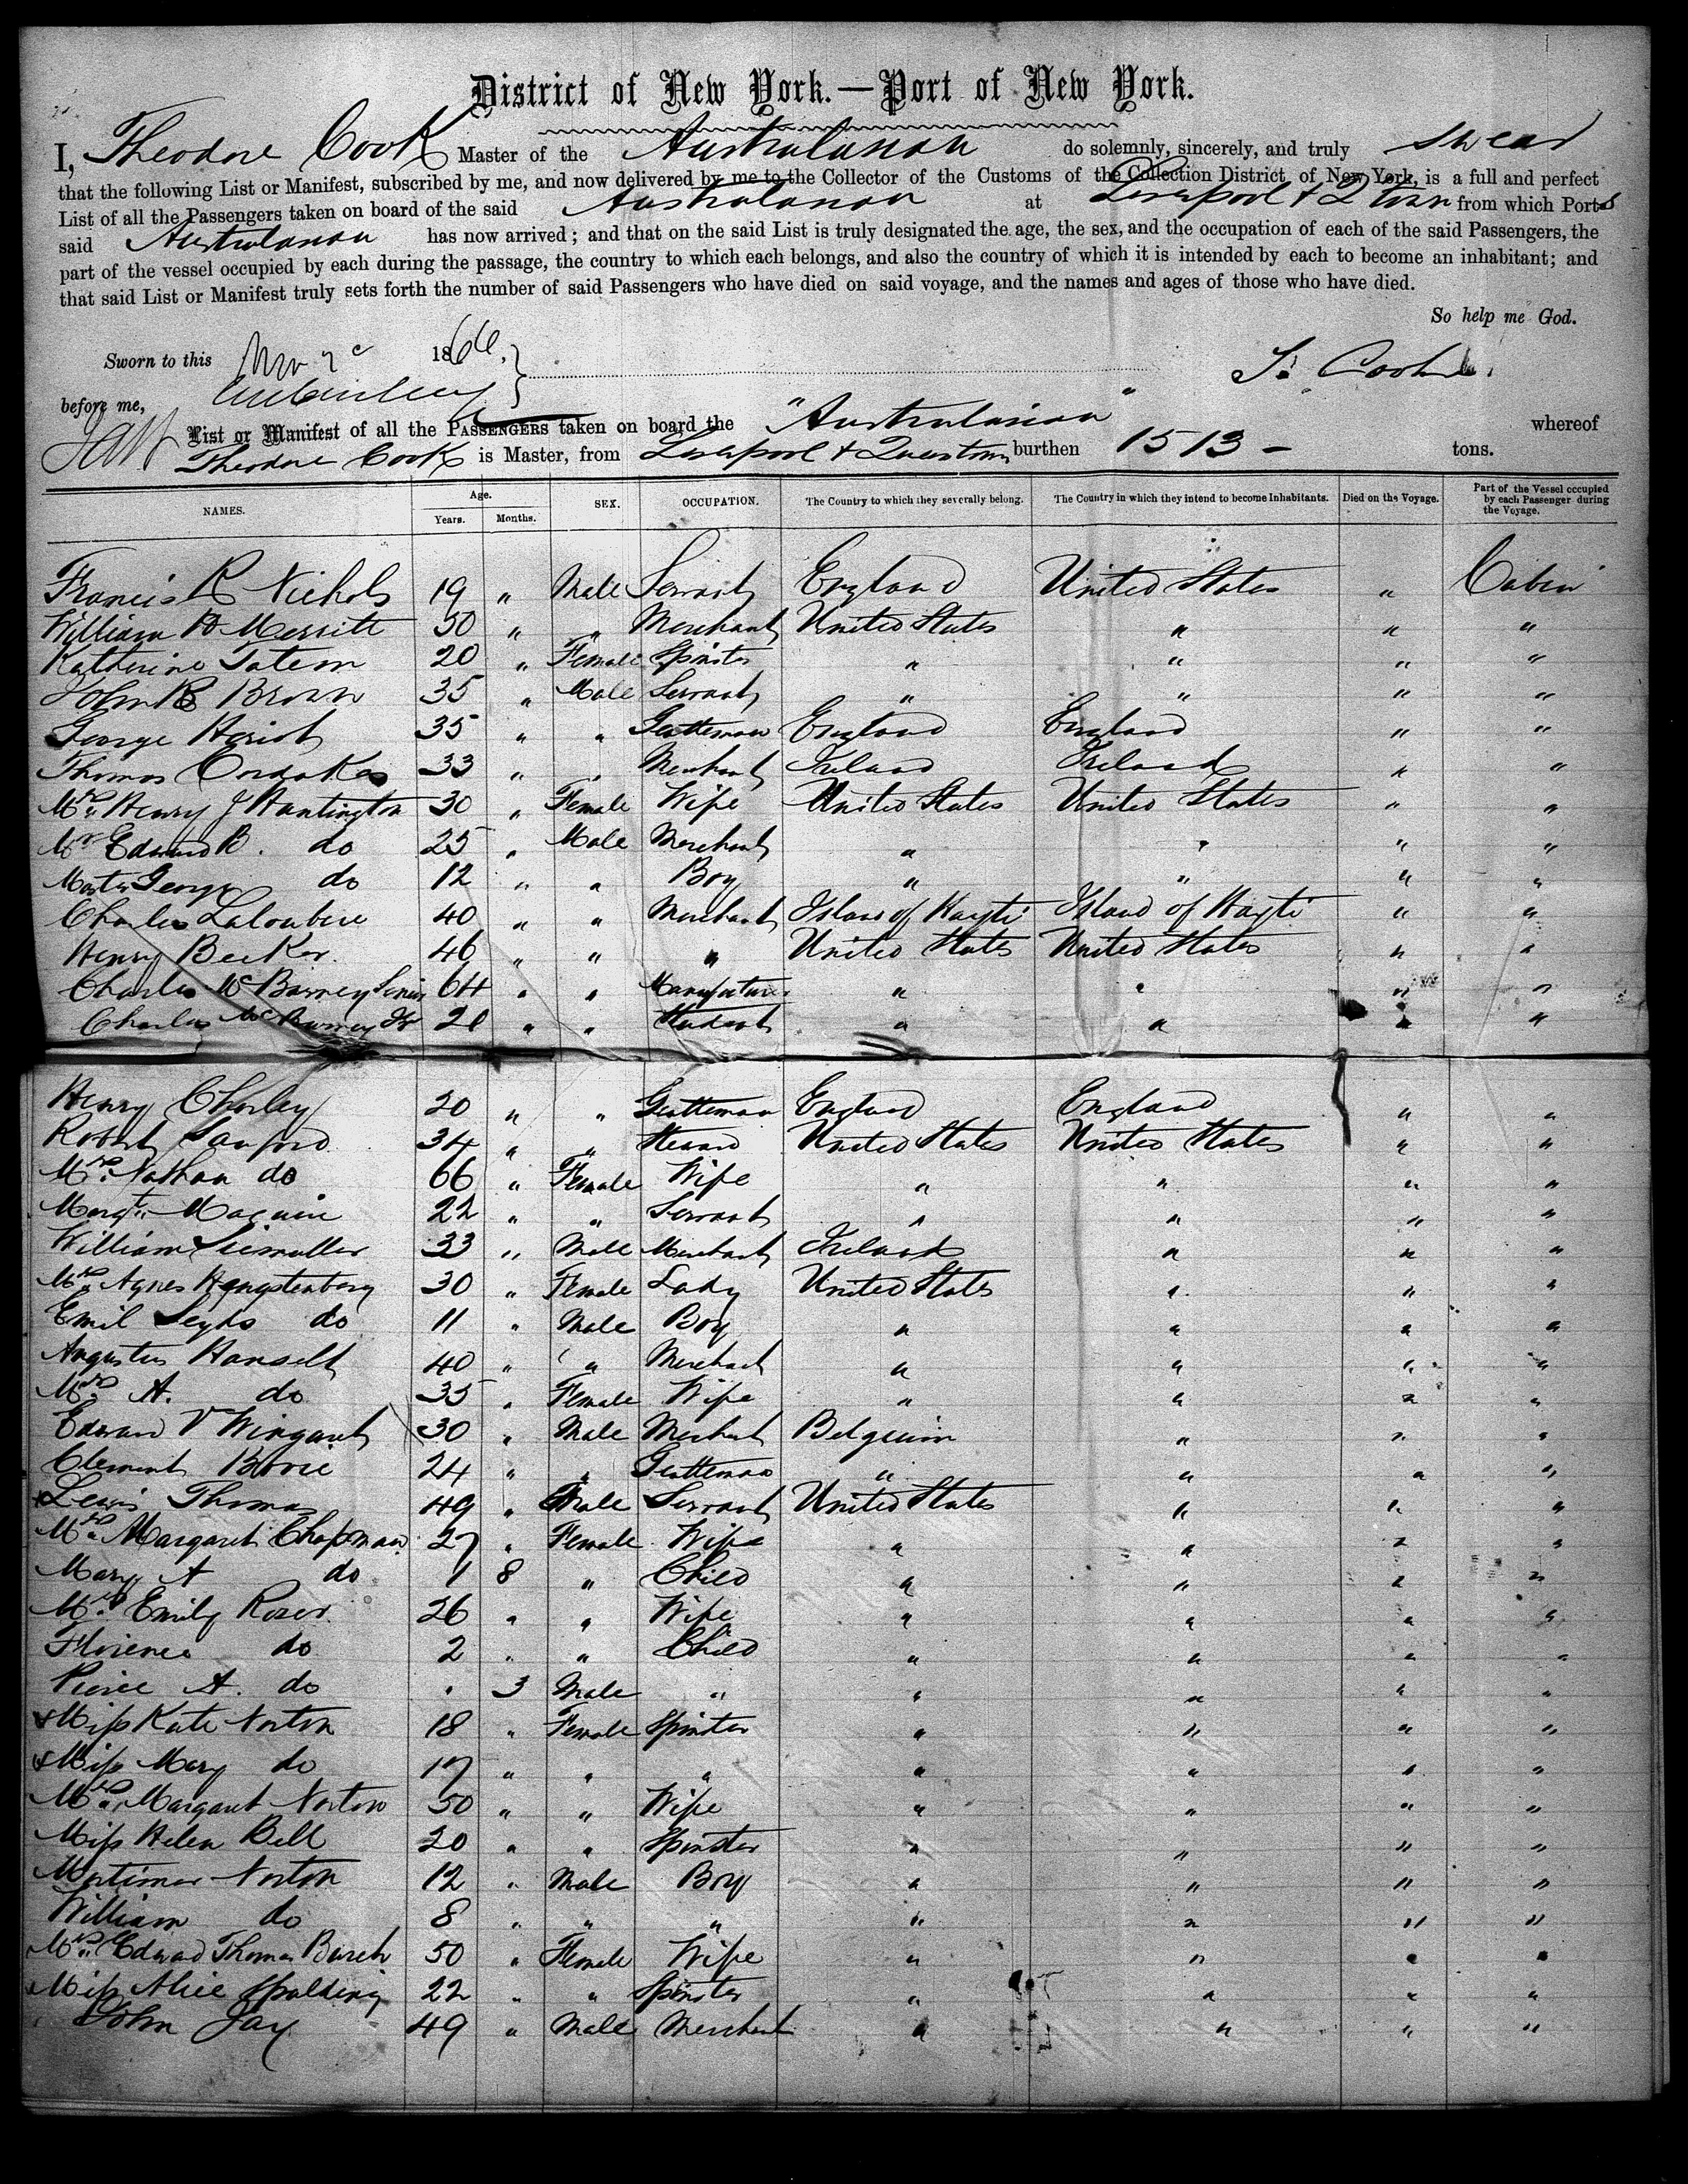 District of New York.—Port of New York.
I, Theodore Cook Master of the Australasian do solemnly, sincerely, and truly swear
that the following List or Manifest, subscribed by me, and now delivered by me to the Collector of the Customs of the Collection District of New York, is a full and perfect
List of all the Passengers taken on board of the said Australasian at Liverpool & Q town from which Ports
said Australasian has now arrived; and that on the said List is truly designated the age, the sex, and the occupation of each of the said Passengers, the
part of the vessel occupied by each during the passage, the country to which each belongs, and also the country of which it is intended by each to become an inhabitant; and
that said List or Manifest truly sets forth the number of said Passengers who have died on said voyage, and the names and ages of those who have died.
So help me God.
Sworn to this 1866.
T. Cook
before me,
List or Manifest of all the PASSENGERS taken on board the "Australasian" whereof
Theodore Cook is Master, from Liverpool & Queenstown burthen 1513 - tons.
NAMES. Age. Years. Months. SEX. OCCUPATION. The Country to which they severally belong. The Country in which they intend to become Inhabitants. Died on the Voyage. Part of the Vessel occupied by each Passenger during the Voyage.
Francis R Nichols 19 " Male Servant England United States " Cabin
William H Merritt 50 " " Merchant United States " " "
Katherine Tatem 20 " Female Spinster " " " "
John R Brown 35 " Male Servant " " " "
George Heriot 35 " " Gentleman England England " "
Thomas 33 " " Merchant Ireland Ireland " "
Mrs Henry J Huntington 30 " Female Wife United States United States " "
Mr Edward B. do 25 " Male Merchant " " " "
Master George do 12 " " Boy " " " "
Charles Laloubere 40 " " Merchant Island of Hayti Island of Hayti " "
Henry Becker 46 " " " United States United States " "
Charles McBurney Senior 64 " " Manufacturer " " " "
Charles McBurney Jr 21 " " Student " " " "
Henry Chorley 20 " " Gentleman England England " "
Robert Sanford 34 " " Steward United States United States " "
Mrs Nathan do 66 " Female Wife " " " "
Margt Maguire 22 " " Servant " " " "
William 33 " Male Merchant Ireland " " "
Mrs Agnes Hengstenberg 30 " Female Lady United States " " "
Emil do 11 " Male Boy " " " "
Augustus Hanselt 40 " " Merchant " " " "
Mrs A. do 35 " Female Wife " " " "
Edward V Wingaert 30 " Male Merchant Belgium " " "
Clement Bovie 24 " " Gentleman " " " "
Lewis Thomas 49 " Male Servant United States " " "
Mrs Margaret Chapman 27 " Female Wife " " " "
Mary A do 1 8 " Child " " " "
Mrs Emily Roser 26 " " Wife " " " "
Florence do 2 " " Child " " " "
Pierce A. do " 3 Male " " " " "
Miss Kate Norton 18 " Female Spinster " " " "
Miss Mary do 17 " " " " " " "
Mrs Margaret Norton 50 " " Wife " " " "
Miss Helen Bell 20 " " Spinster " " " "
Mortimer Norton 12 " Male Boy " " " "
William do 8 " " " " " " "
Mrs Edward Thomas Burch 50 " Female Wife " " " "
Miss Alice Spalding 22 " " Spinster " " " "
John Jay 49 " Male Merchant " " " "